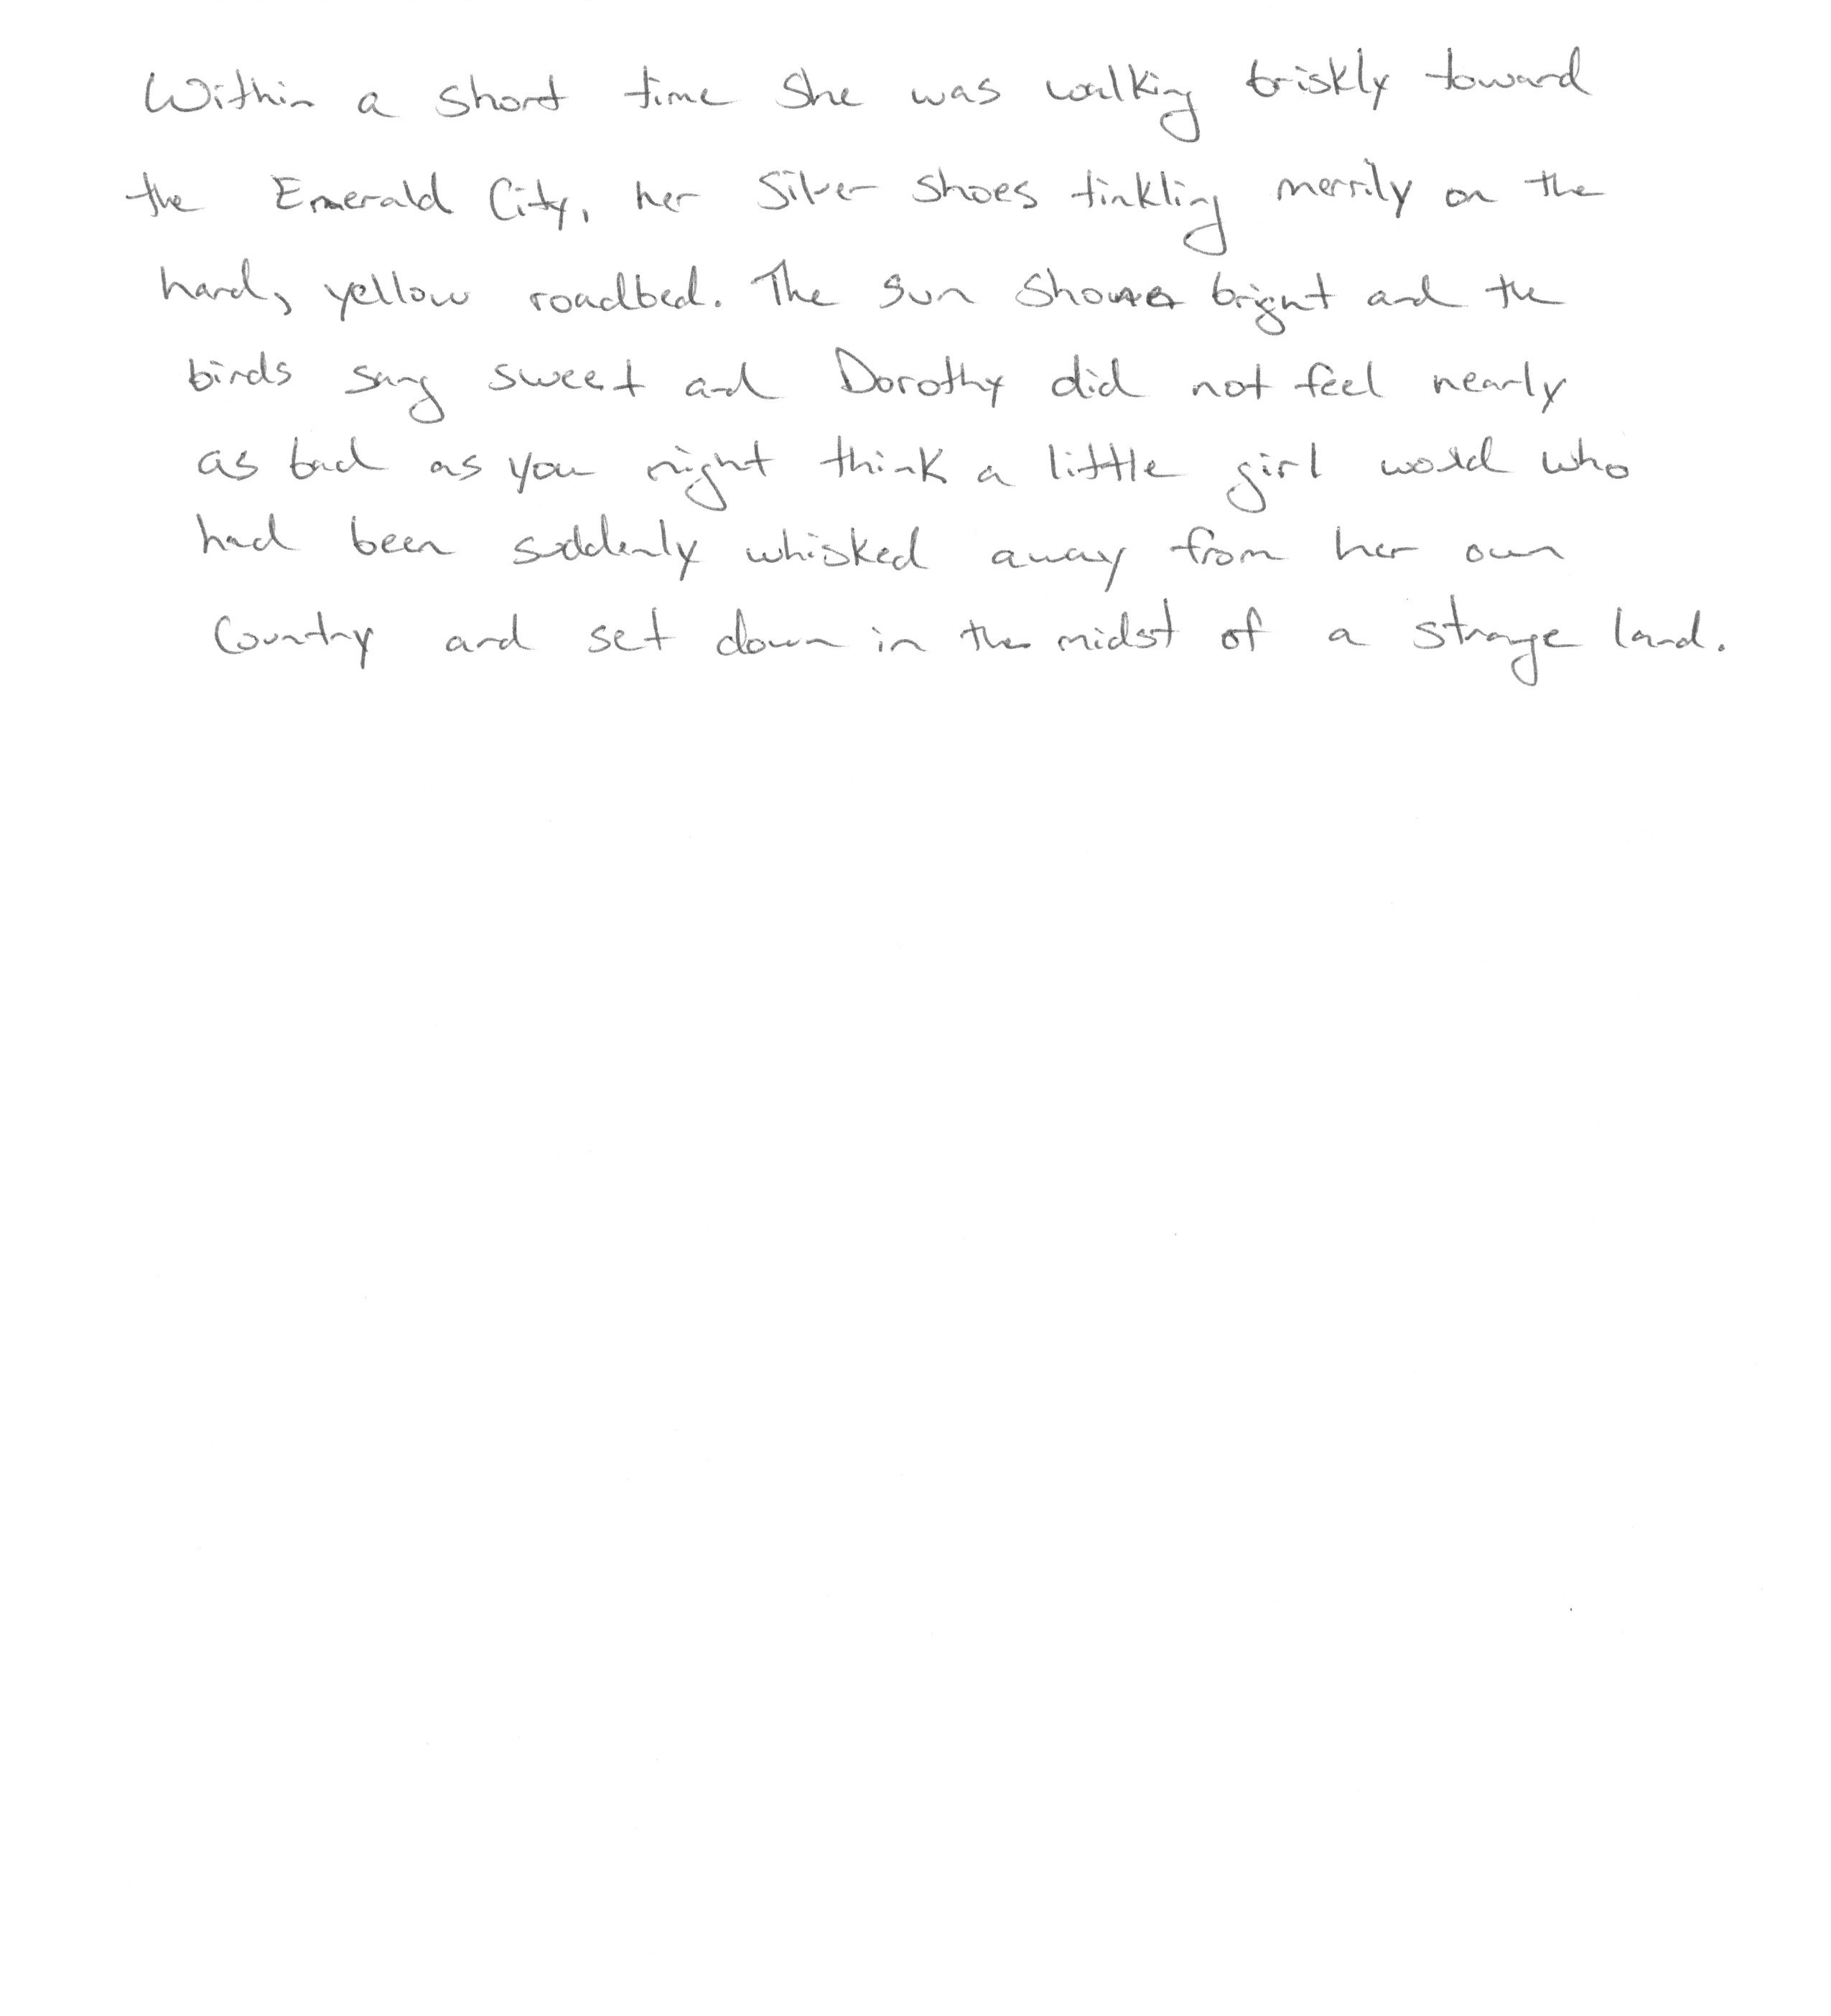 Within a short time she was walking briskly toward
the Emerald City, her Silver Shoes tinkling merrily on the
hard, yellow roadbed. The sun shone bright and the
birds sang sweet and Dorothy did not feel nearly
as bad as you might think a little girl would who
had been suddenly whisked away from her own
country and set down in the midst of a strange land.